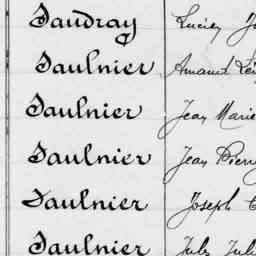 Saudray Lucien
Saulnier Amand
Saulnier Jean Marie
Saulnier Jean Pierre
Saulnier Joseph
Saulnier Jules